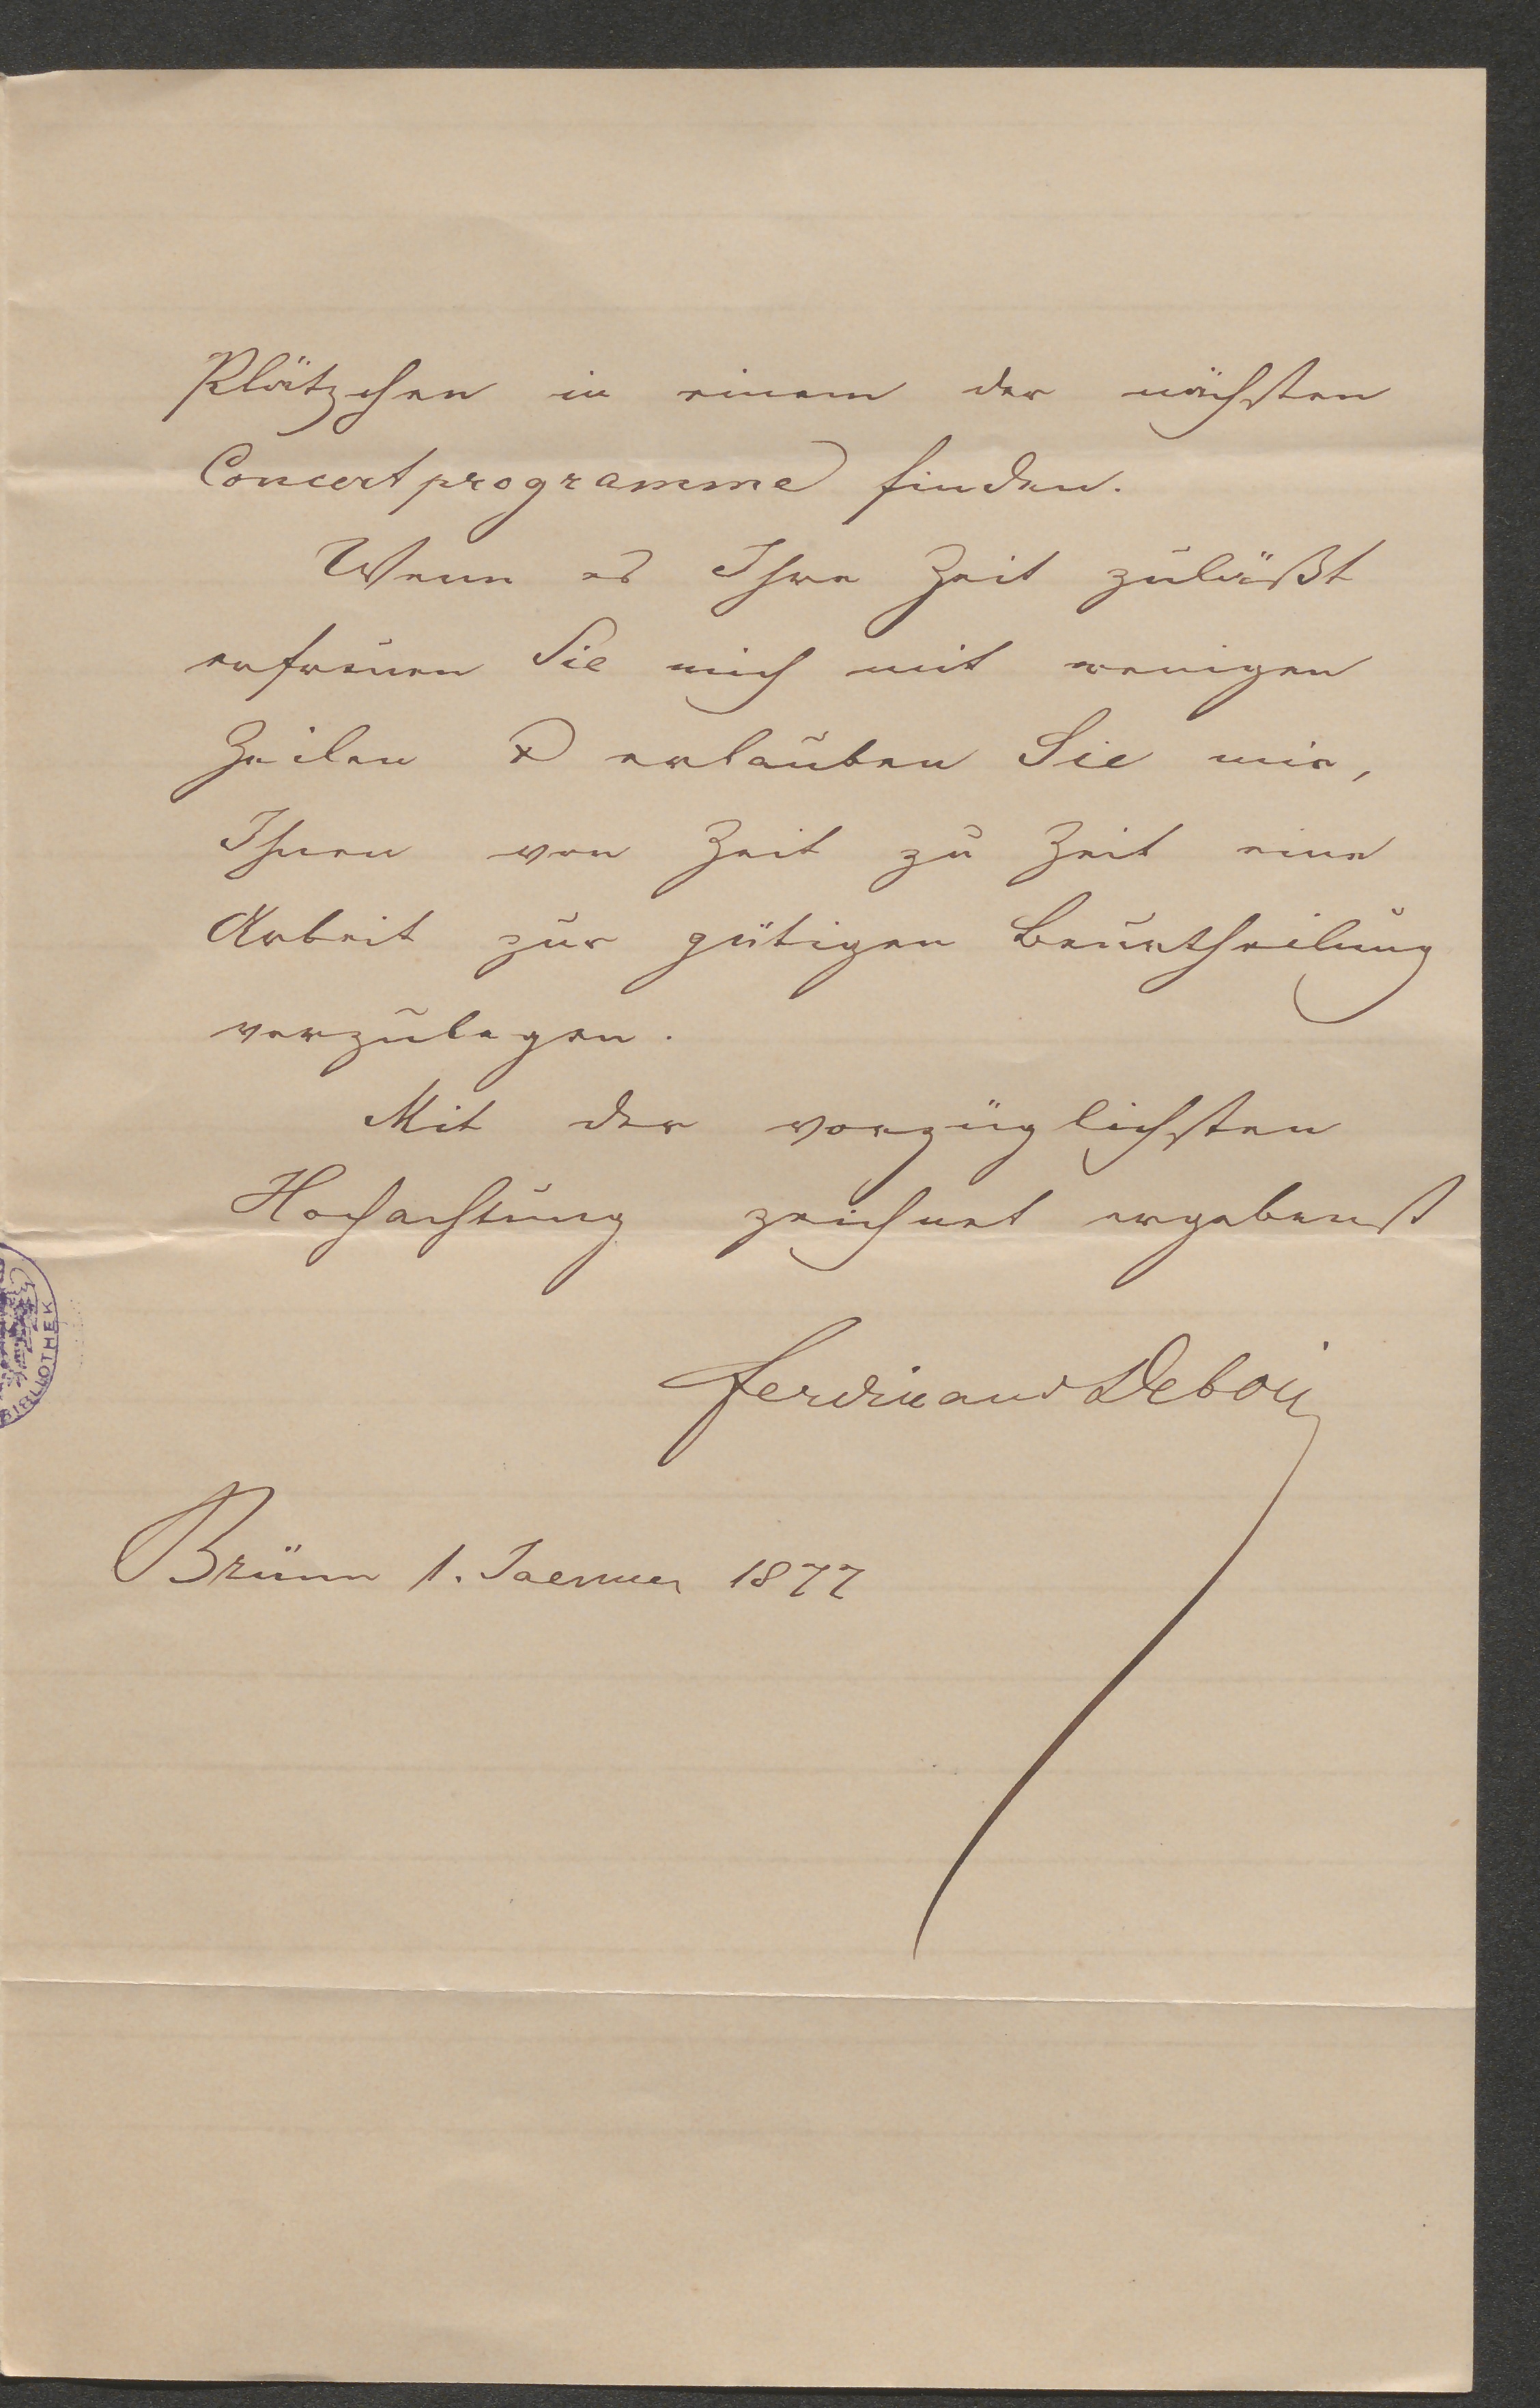 Plätzchen in einem der nächsten
Concertprogramme finden.
Wenn es Ihre Zeit zuläßt
erfreuen Sie mich mit wenigen
Zeilen & erlauben Sie mir,
Ihnen von Zeit zu Zeit eine
Arbeit zur gütigen Beurtheilung
vorzulegen.
Mit der vorzüglichsten
Hochachtung zeichnet ergebenst
Ferdinand Debois
Brünn 1. Jaenner 1877
BIBLIOTHEK